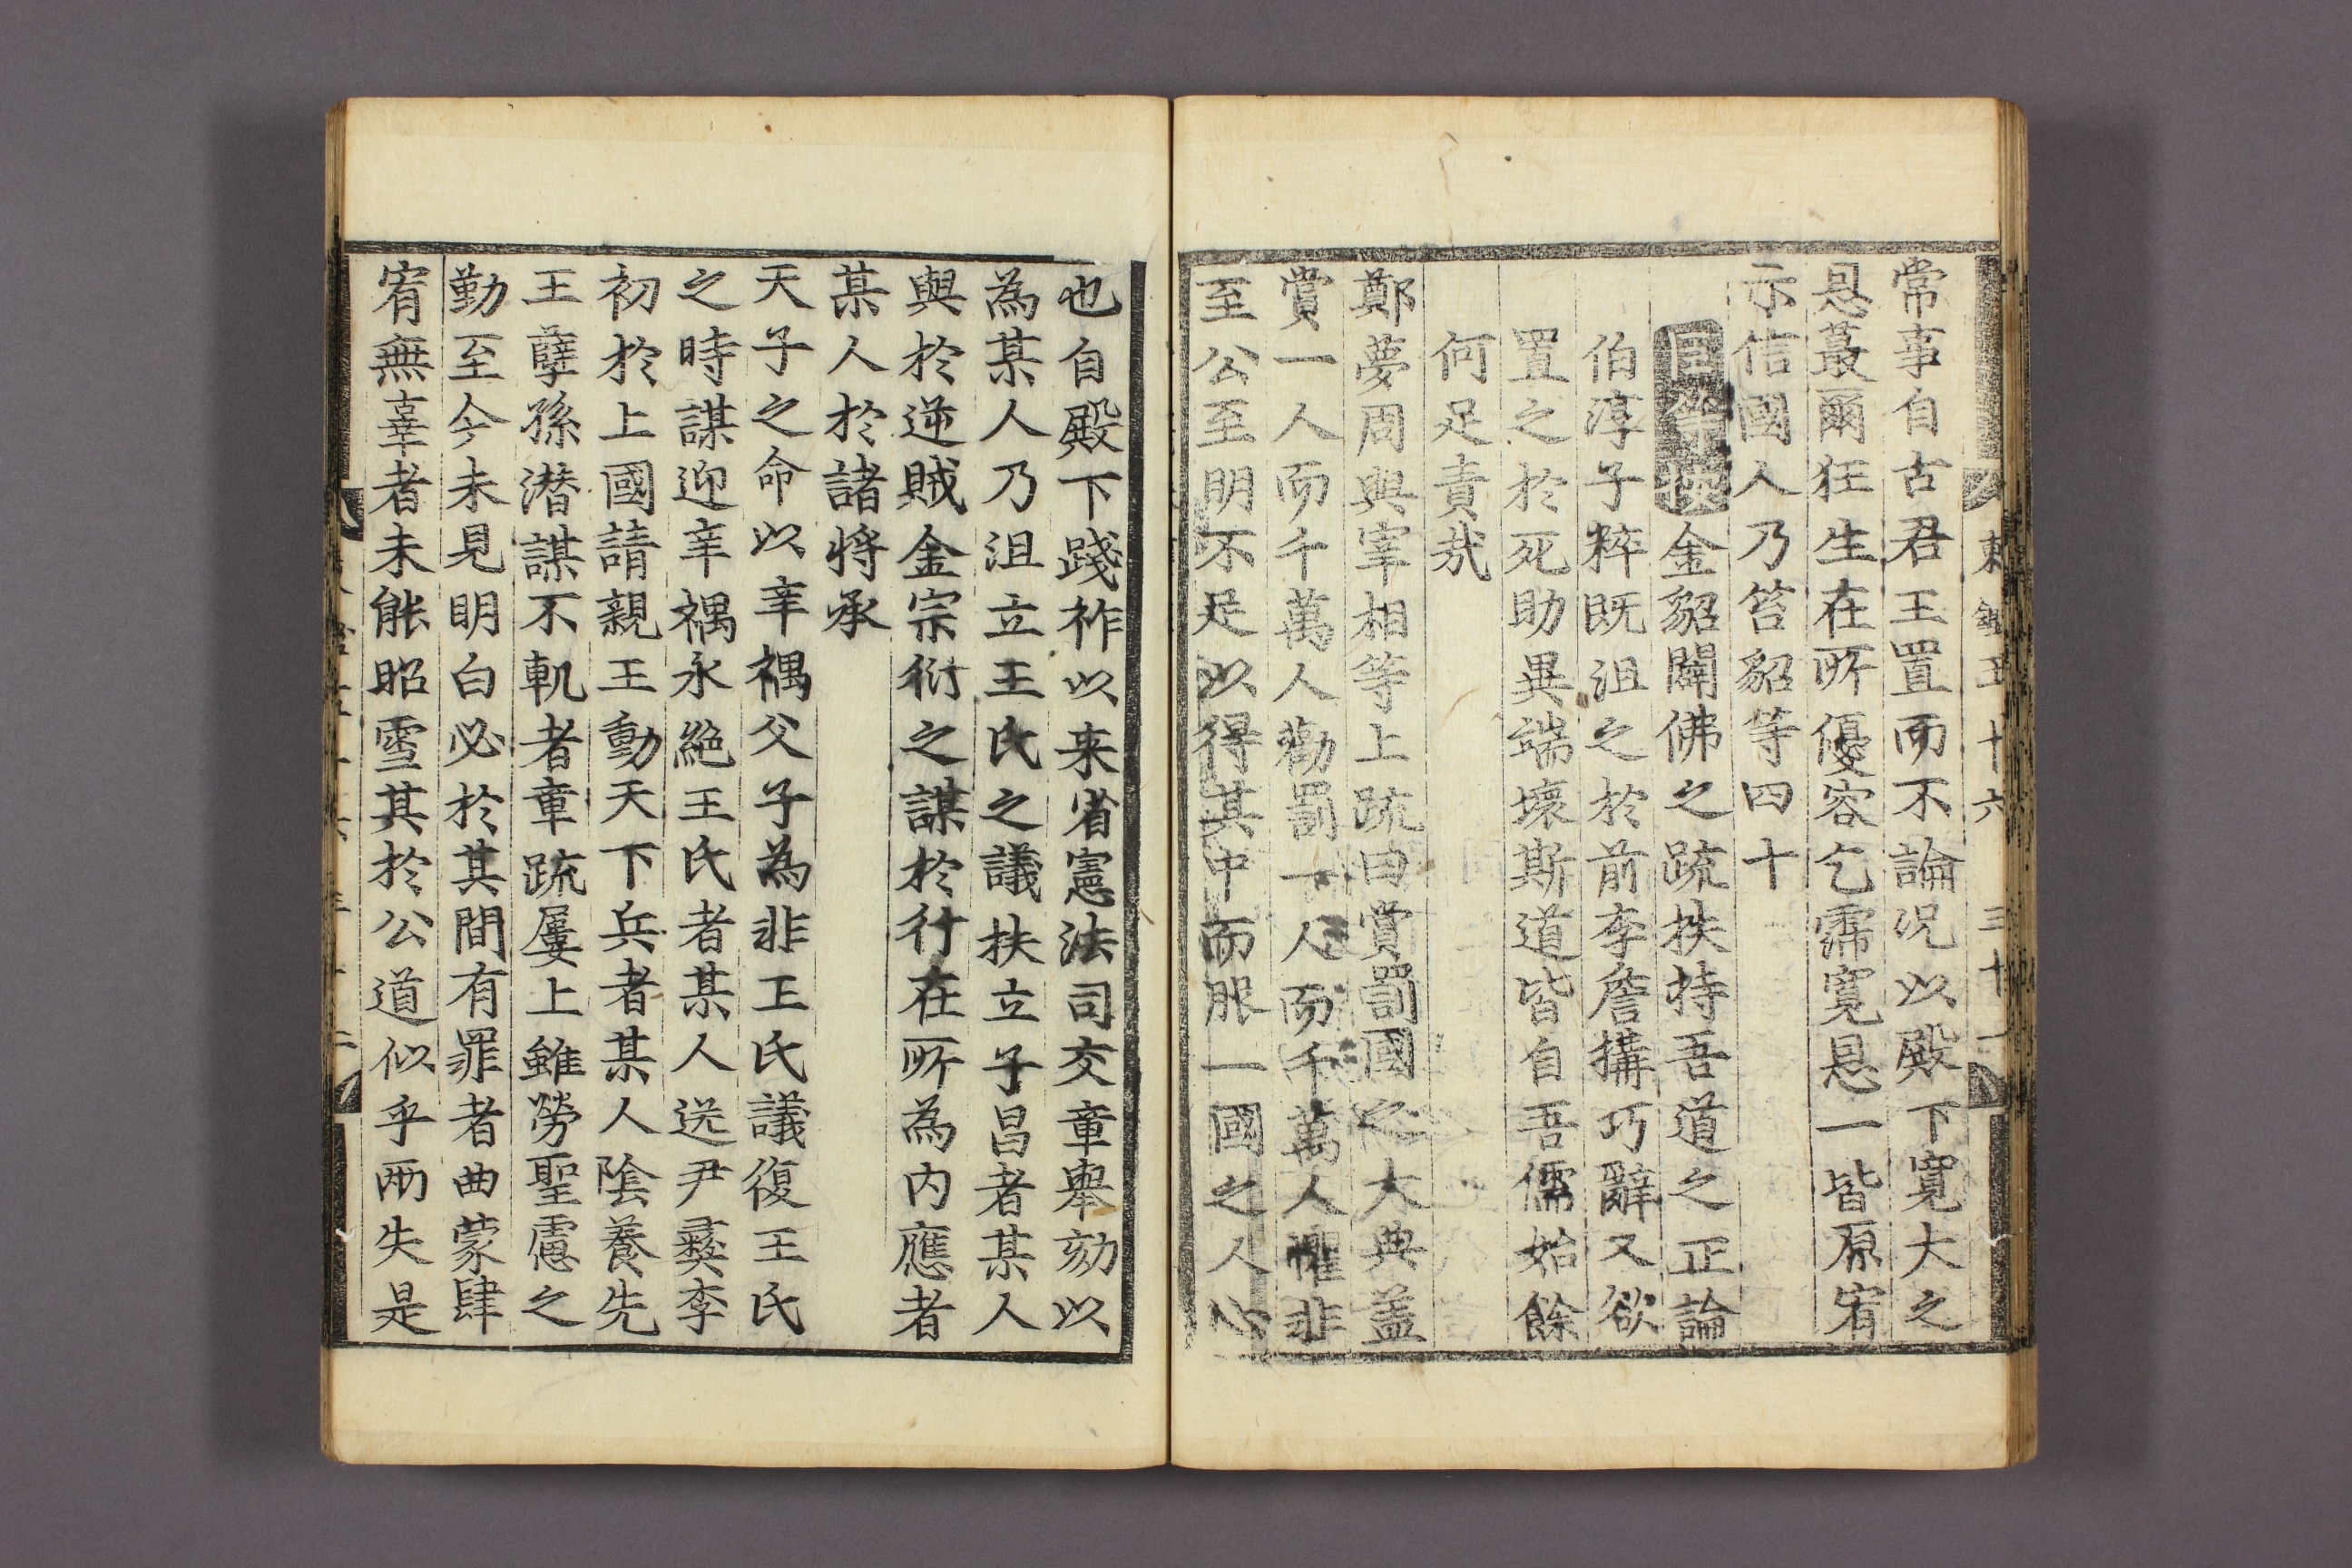 東鑑五十六 三十一
常事自古君王置而不論況以殿下寬大之
恩蕞爾狂生在所優容乞霈寬恩一皆原宥
示信國人乃笞貂等四十
臣等按金貂闢佛之疏扶持吾道之正論
伯淳子粹既沮之於前李詹搆巧辭又欲
置之於死助異端壞斯道皆自吾儒始餘
何足責㦲
鄭夢周與宰相等上疏曰賞罰國之大典盖
賞一人而千萬人勸罰一人而千萬人懼非
至公至明不足以得其中而服一國之人心
也自殿下踐祚以来省憲法司交章舉劾以
為某人乃沮立王氏之議扶立子昌者某人
與於逆賊金宗衍之謀於行在所為内應者
某人於諸將承
天子之命以辛禑父子為非王氏議復王氏
之時謀迎辛禑永絶王氏者某人送尹彛李
初於上國請親王動天下兵者某人陰養先
王孽孫潜謀不軌者章疏屢上雖勞聖慮之
勤至今未見明白必於其間有罪者曲蒙肆
宥無辜者未能昭雪其於公道似乎兩失是